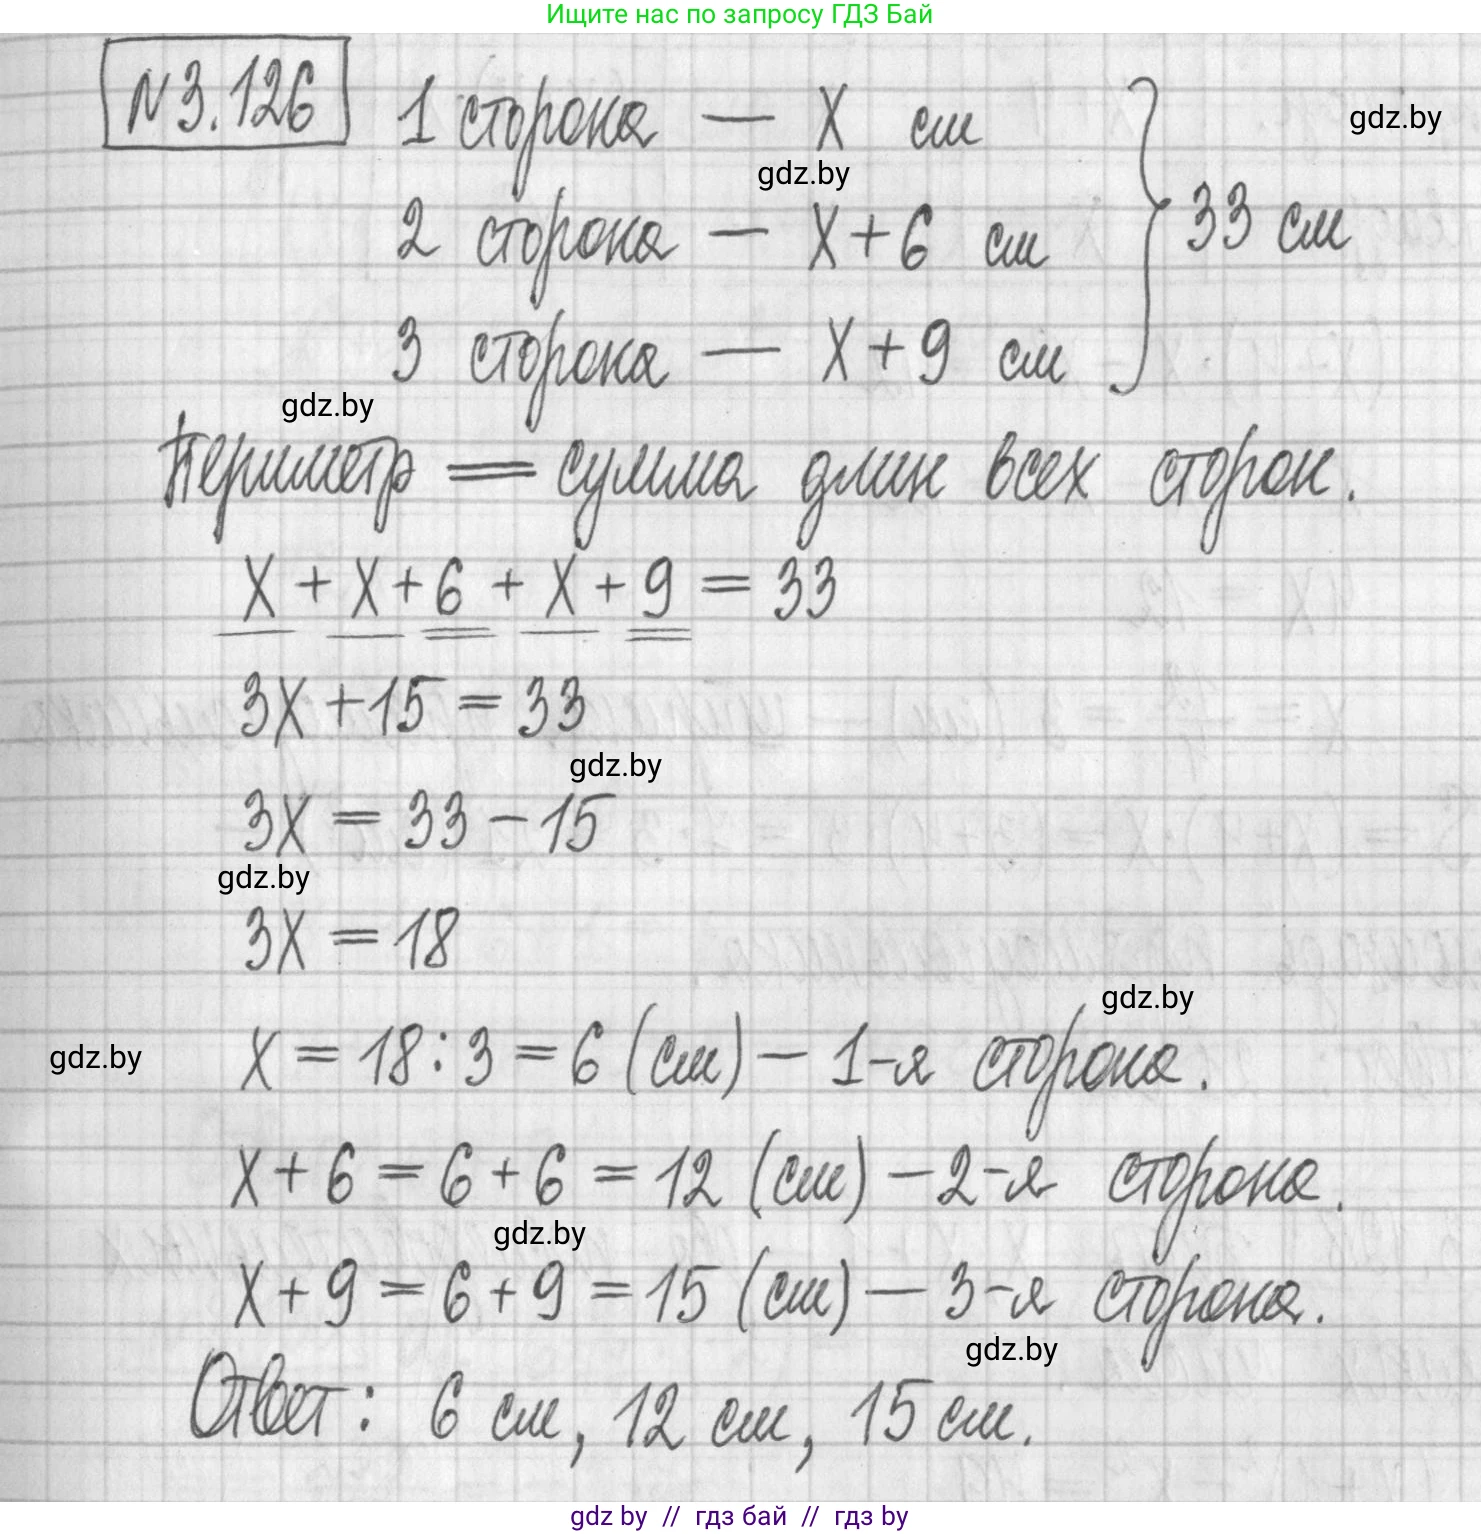 Ищите нас по запросу ГДЗ Бай
N 3.126
1 сторона — x см
gdz.by
gdz.by
2 сторона — x+6 см
33 см
3 сторона — x+9 см
gdz.by
Периметр = сумма длин всех сторон.
x + x + 6 + x + 9 = 33
3x + 15 = 33
gdz.by
3x = 33 - 15
gdz.by
3x = 18
gdz.by
x = 18 : 3 = 6 (см) — 1-я сторона.
gdz.by
x + 6 = 6 + 6 = 12 (см) — 2-я сторона.
gdz.by
x + 9 = 6 + 9 = 15 (см) — 3-я сторона.
gdz.by
Ответ: 6 см, 12 см, 15 см.
gdz by // гдз бай // гдз by